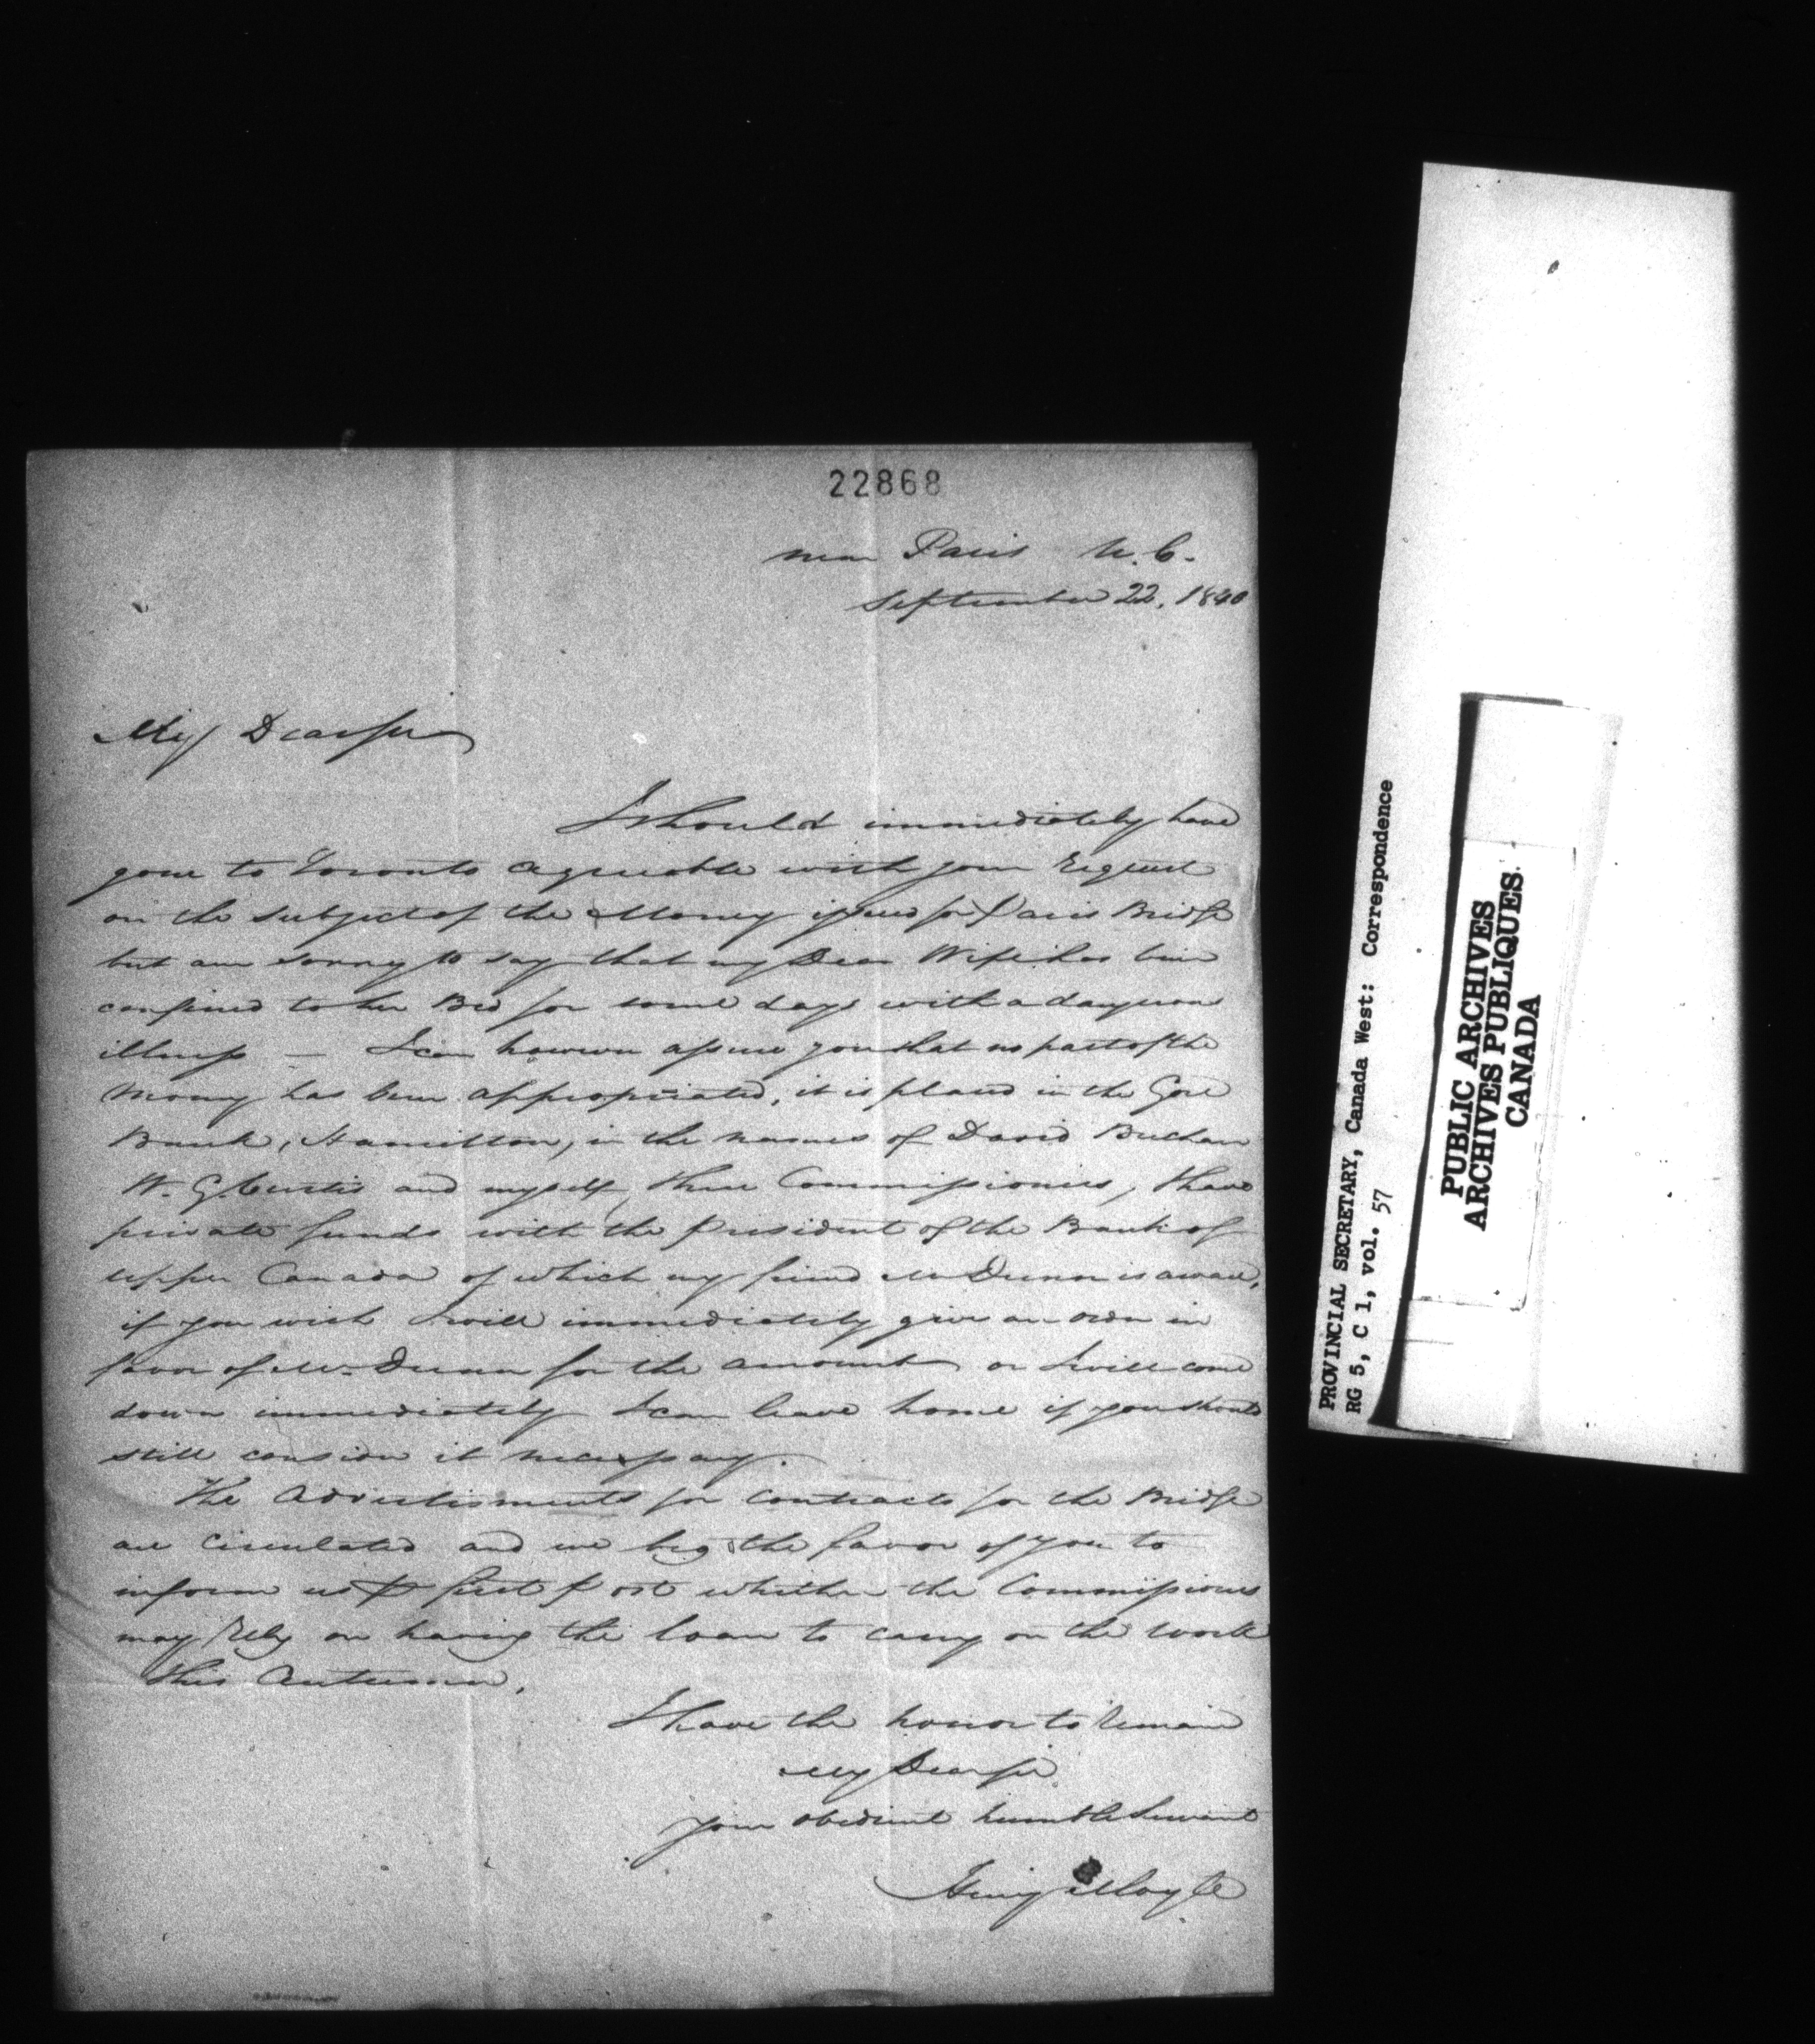 22868
near Paris U.C.
September 22, 1840
My Dear Sir
I should immediately have
gone to Toronto agreeable with your request
on the subject of the Money issued for Paris Bridge
but am sorry to say that my Dear Wife has been
confined to her Bed for some days with a dangerous
illness — I can however assure you that no part of the
Money has been appropriated, it is placed in the Gore
Bank, Hamilton, in the names of David Buchan
W. G. Curtis and myself, three Commissioners, I have
private funds with the President of the Bank of
Upper Canada of which my friend Mr Dunn is aware,
if you wish I will immediately give an order in
favor of Mr. Dunn for the amount or I will come
down immediately I can leave home if you should
still consider it necessary.
The Advertisments for Contracts for the Bridge
are circulated and we beg the favor of you to
inform us P first Post whether the Commissioners
may rely on having the loan to carry on the work
this Autumn.
I have the honor to remain
My Dear Sir
your obedient humble Servant
Henry Moyle
PROVINCIAL SECRETARY, Canada West: Correspondence
RG 5, C 1, vol. 57
PUBLIC ARCHIVES
ARCHIVES PUBLIQUES
CANADA